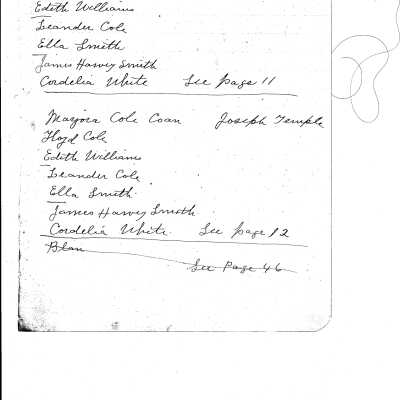 Edith Williams
Leander Cole
Ella Smith
James Harvey Smith
Cordelia White See page 11
Marjora Cole Coan Joseph Temple
Floyd Cole
Edith Williams
Leander Cole
Ella Smith
James Harvey Smith
Cordelia White. See page 12
Blan
See Page 46